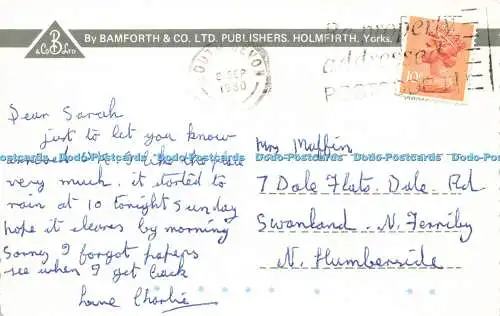 B
& Co Ltd
By BAMFORTH & CO. LTD. PUBLISHERS. HOLMFIRTH, Yorks.
SOUTH DEVON
SEP
1980
Be properly
addressed
POSTCODE
Dear Sarah
just to let you know
arrived O.K. I like the place
very much. it started to
rain at 10 tonight Sunday
hope it cleares by morning
Sorrey I forgot papers
see when I get back
Love Charlie
Mrs Muffin
7 Dale Flats. Dale. Rd
Swanland. N. Ferriby
N. Humberside
Dodo-Postcards Dodo-Postcards Dodo-Postcards Dodo-Postcards